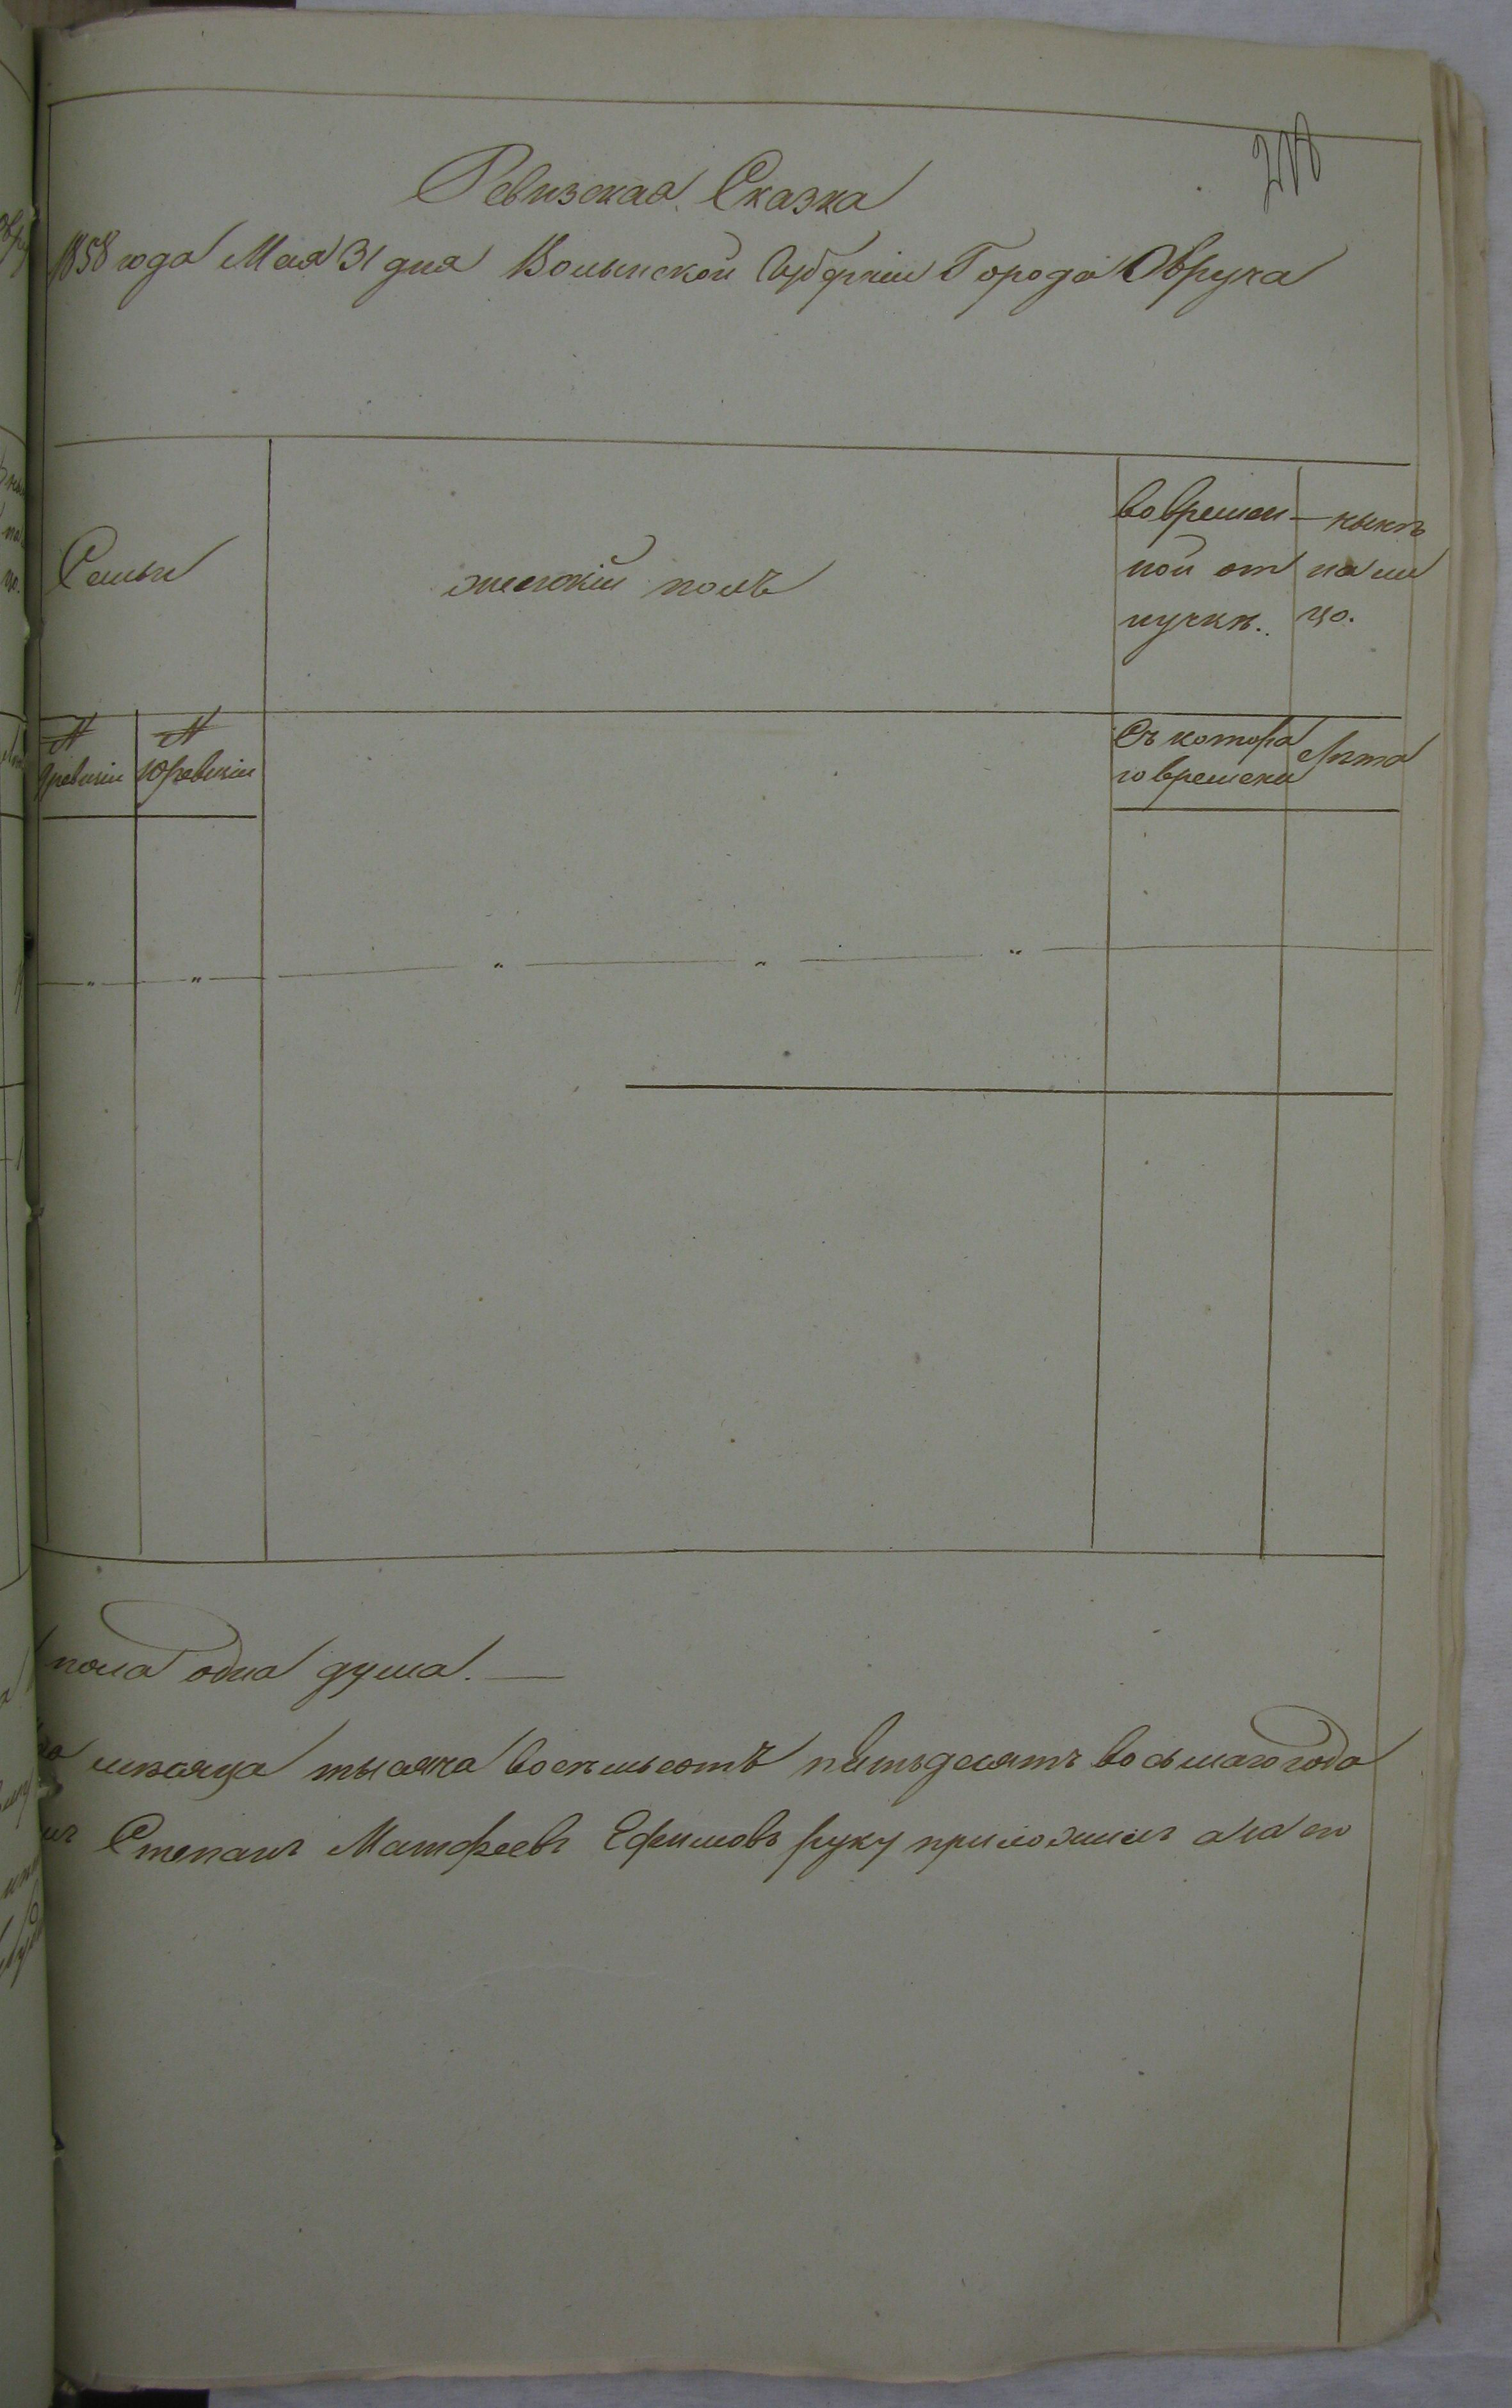 Ревизская Сказка
1858 года Мая 31 дня Волынской Губерніи Города Овруча
Семьи
женскій полъ
во времен
ной от
лучкѣ.
нынѣ
на ли
цо.
№
9 ревизіи
№
10 ревизіи
Съ котора
го времени
Лѣта
" " " " "
пола одна душа. —
мѣсяца тысяча восемьсотъ пятьдесятъ восьмаго года
Степанъ Матфеевъ Ефимовъ руку приложилъ а на по